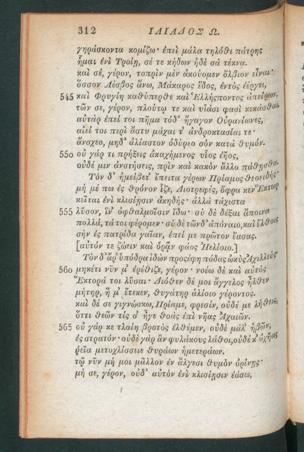 312 ΙΛΙΑΔΟΣ Ω.
γηράσκοντα κομίζω· ἐπεὶ μάλα τηλόθι πάτρης
ἧμαι ἐνὶ Τροίῃ, σέ τε κήδων ἠδὲ σὰ τέκνα.
καὶ σέ, γέρον, τοπρὶν μὲν ἀκούομεν ὄλβιον εἶναι·
ὅσσον Λέσβος ἄνω, Μάκαρος ἕδος, ἐντὸς ἐέργει,
545 καὶ Φρυγίη καθύπερθε καὶ Ἑλλήσποντος ἀπείρων,
τῶν σε, γέρον, πλούτῳ τε καὶ υἱάσι φασὶ κεκάσθαι.
αὐτὰρ ἐπεί τοι πῆμα τόδ' ἤγαγον Οὐρανίωνες,
αἰεί τοι περὶ ἄστυ μάχαι τ' ἀνδροκτασίαι τε·
ἄνσχεο, μηδ' ἀλίαστον ὀδύρεο σὸν κατὰ θυμόν.
550 οὐ γάρ τι πρήξεις ἀκαχήμενος υἷος ἑῆος,
οὐδέ μιν ἀνστήσεις, πρὶν καὶ κακὸν ἄλλο πάθῃσθα.
Τὸν δ' ἠμείβετ' ἔπειτα γέρων Πρίαμος θεοειδής·
μή μέ πω ἐς θρόνον ἷζε, Διοτρεφές, ὄφρα κεν Ἕκτωρ
κεῖται ἐνὶ κλισίῃσιν ἀκηδής· ἀλλὰ τάχιστα
555 λῦσον, ἵν' ὀφθαλμοῖσιν ἴδω· σὺ δὲ δέξαι ἄποινα
πολλά, τά τοι φέρομεν· σὺ δὲ τῶνδ' ἀπόναιο, καὶ ἔλθοις
σὴν ἐς πατρίδα γαῖαν, ἐπεί με πρῶτον ἔασας.
[αὐτόν τε ζώειν καὶ ὁρᾶν φάος Ἠελίοιο.]
Τὸν δ' ἄρ' ὑπόδρα ἰδὼν προσέφη πόδας ὠκὺς Ἀχιλλεύς·
560 μηκέτι νῦν μ' ἐρέθιζε, γέρον· νοέω δὲ καὶ αὐτὸς
Ἕκτορά τοι λῦσαι· Διόθεν δέ μοι ἄγγελος ἦλθεν
μήτηρ, ἥ μ' ἔτεκεν, θυγάτηρ ἁλίοιο γέροντος.
καὶ δέ σε γιγνώσκω, Πρίαμε, φρεσίν, οὐδέ με λήθεις,
ὅττι θεῶν τίς σ' ἦγε θοὰς ἐπὶ νῆας Ἀχαιῶν.
565 οὐ γάρ κε τλαίη βροτὸς ἐλθέμεν, οὐδὲ μάλ' ἡβῶν,
ἐς στρατόν· οὐδὲ γὰρ ἂν φυλάκους λάθοι, οὐδέ κ' ὀχῆας
ῥεῖα μετοχλίσσειε θυράων ἡμετεράων.
τῷ νῦν μή μοι μᾶλλον ἐν ἄλγεσι θυμὸν ὀρίνῃς·
μή σε, γέρον, οὐδ' αὐτὸν ἐνὶ κλισίῃσιν ἐάσω,